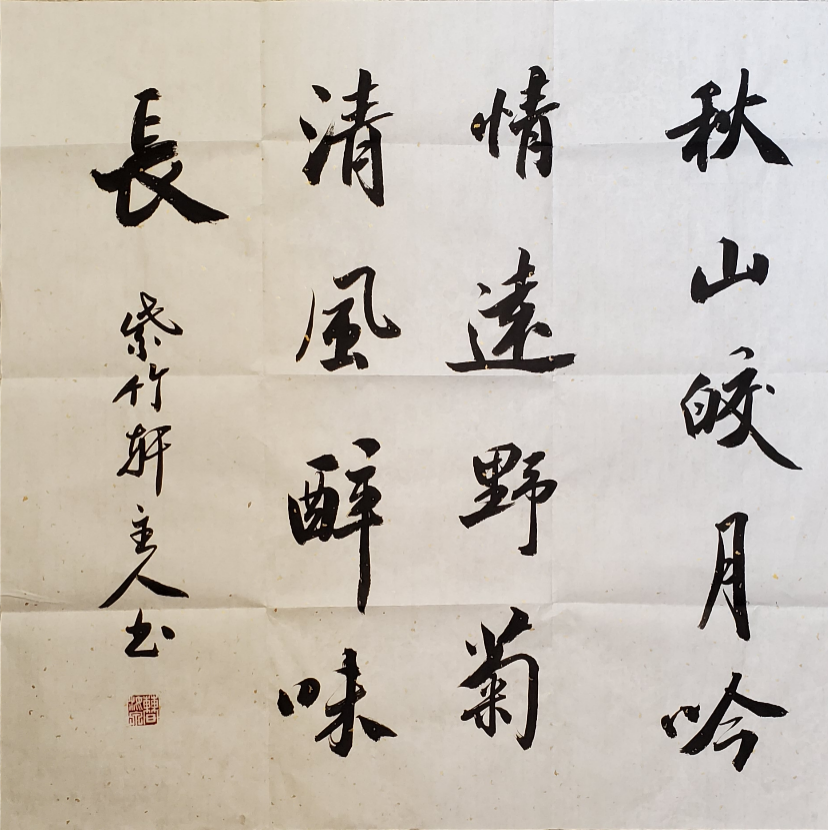 秋山皎月吟
情遠野菊
清風醉味
長
紫竹轩主人书